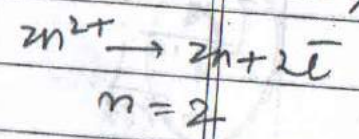 Zn²⁺ → Zn + 2ē
n = 2